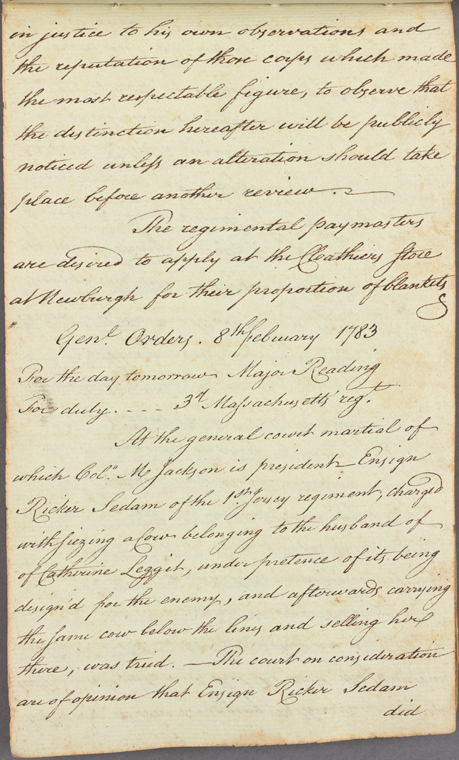 in justice to his own observations and
the reputation of those corps which made
the most respectable figure, to observe that
the distinction hereafter will be publicly
noticed unless an alteration should take
place before another review.
The regimental paymasters
are desired to apply at the Cloathiers store
at Newburgh for their proportion of blankets
Genl. Orders. 8th febuary 1783
For the day tomorrow Major Reading
For duty .... 3d Massachusetts regt.
At the general court martial of
which Coln. M Jackson is president Ensign
Ricker Sedam of the 1st Jersey regiment, charged
with siezing a cow belonging to the husband of
of Catherine Leggit, under pretence of its being
design'd for the enemy, and afterwards carrying
the same cow below the lines and selling her
there, was tried. — The court on consideration
are of opinion that Ensign Ricker Sedam
did